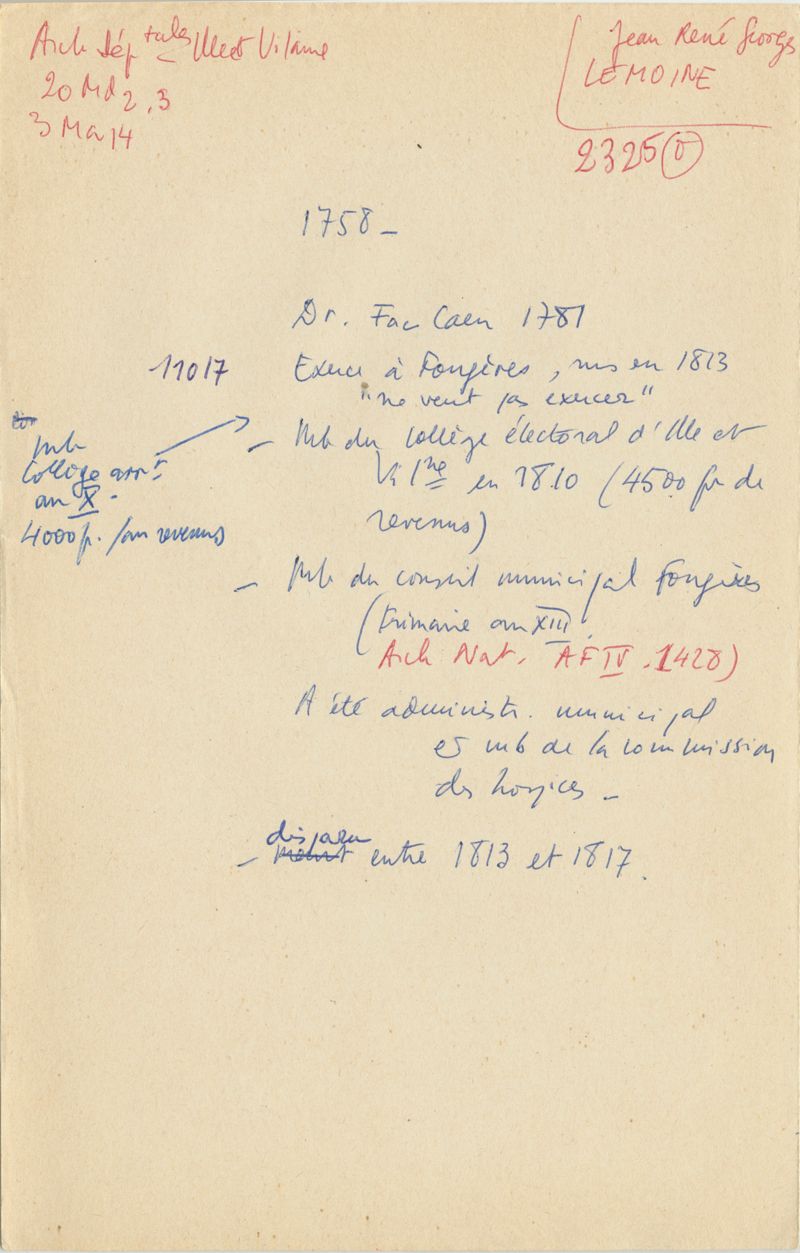 Arch Dép tales Ille et Vilaine
20 Md 2, 3
3 Ma 14
Jean René Georges
LEMOINE
2325
1758 -
Dr. Fac Caen 1781
11017
Exerce à Fougères, mais en 1813
"ne veut pas exercer"
mb
collège arrt
an X -
4000 fr. /an revenus
- Mb du Collège électoral d'Ille et
Vilne en 1810 (4500 fr de
revenus)
- Mb du conseil municipal Fougères
(frimaire an XIII.
Arch Nat. AF IV. 1428)
A été administr. municipal
et mb de la commission
des hospices -
- disparu meurt entre 1813 et 1817.